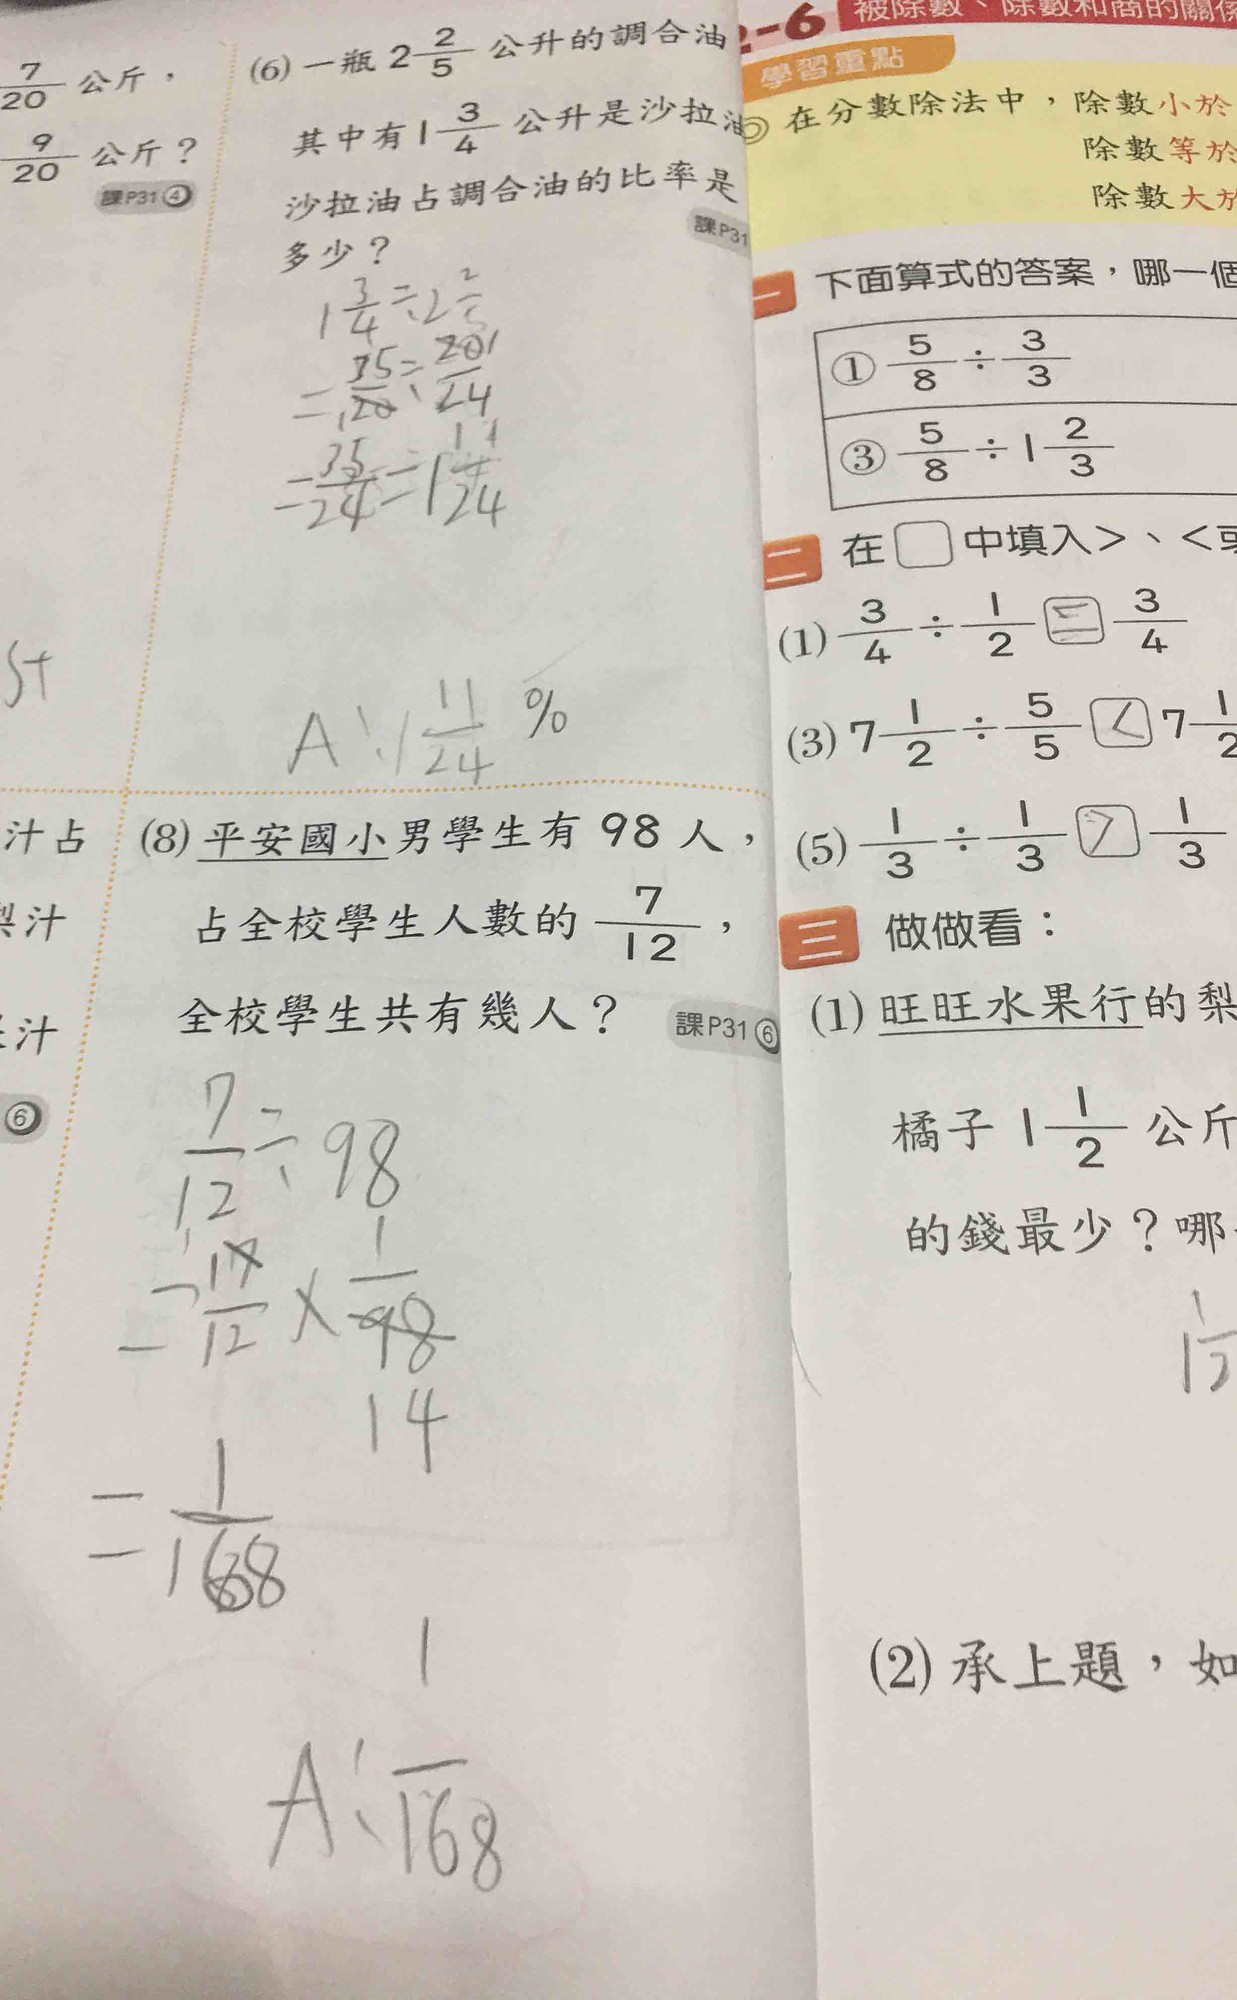 7/20 公斤，
9/20 公斤？
課P31④
(6) 一瓶 2 2/5 公升的調合油
其中有 1 3/4 公升是沙拉油
沙拉油占調合油的比率是
多少？
課P31
1 3/4 ÷ 2 2/5
= 35/20 ÷
= 35/24 = 1 11/24
A: 1 11/24 %
汁占
梨汁
汁
⑥
(8) 平安國小男學生有 98 人，
占全校學生人數的 7/12，
全校學生共有幾人？
課P31⑥
7/12 ÷ 98
× 1/98
14
= 1/168
A: 1/168
2-6 被除數、除數和商的關係
學習重點
在分數除法中，除數小於
除數等於
除數大於
一 下面算式的答案，哪一個
① 5/8 ÷ 3/3
③ 5/8 ÷ 1 2/3
二 在□中填入＞、＜或
(1) 3/4 ÷ 1/2 = 3/4
(3) 7 1/2 ÷ 5/5 < 7 1/2
(5) 1/3 ÷ 1/3 > 1/3
三 做做看：
(1) 旺旺水果行的梨
橘子 1 1/2 公斤
的錢最少？哪
1 1/2
(2) 承上題，如